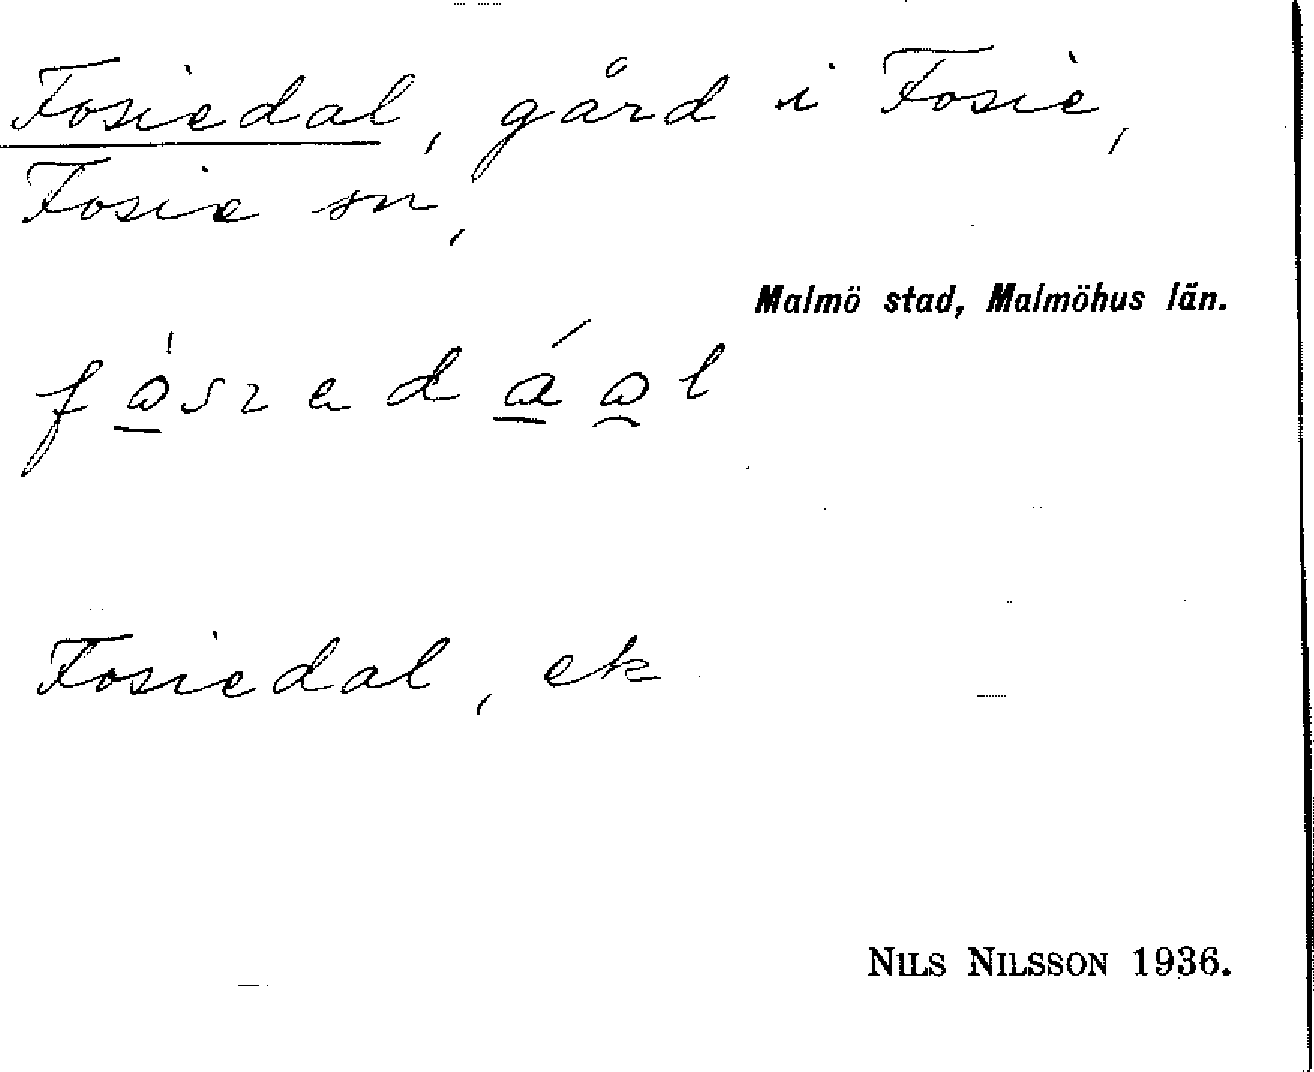 Fosiedal, gård i Fosie,
Fosie sn,
Malmö stad, Malmöhus län.
Fosiedal, ek
NILS NILSSON 1936.